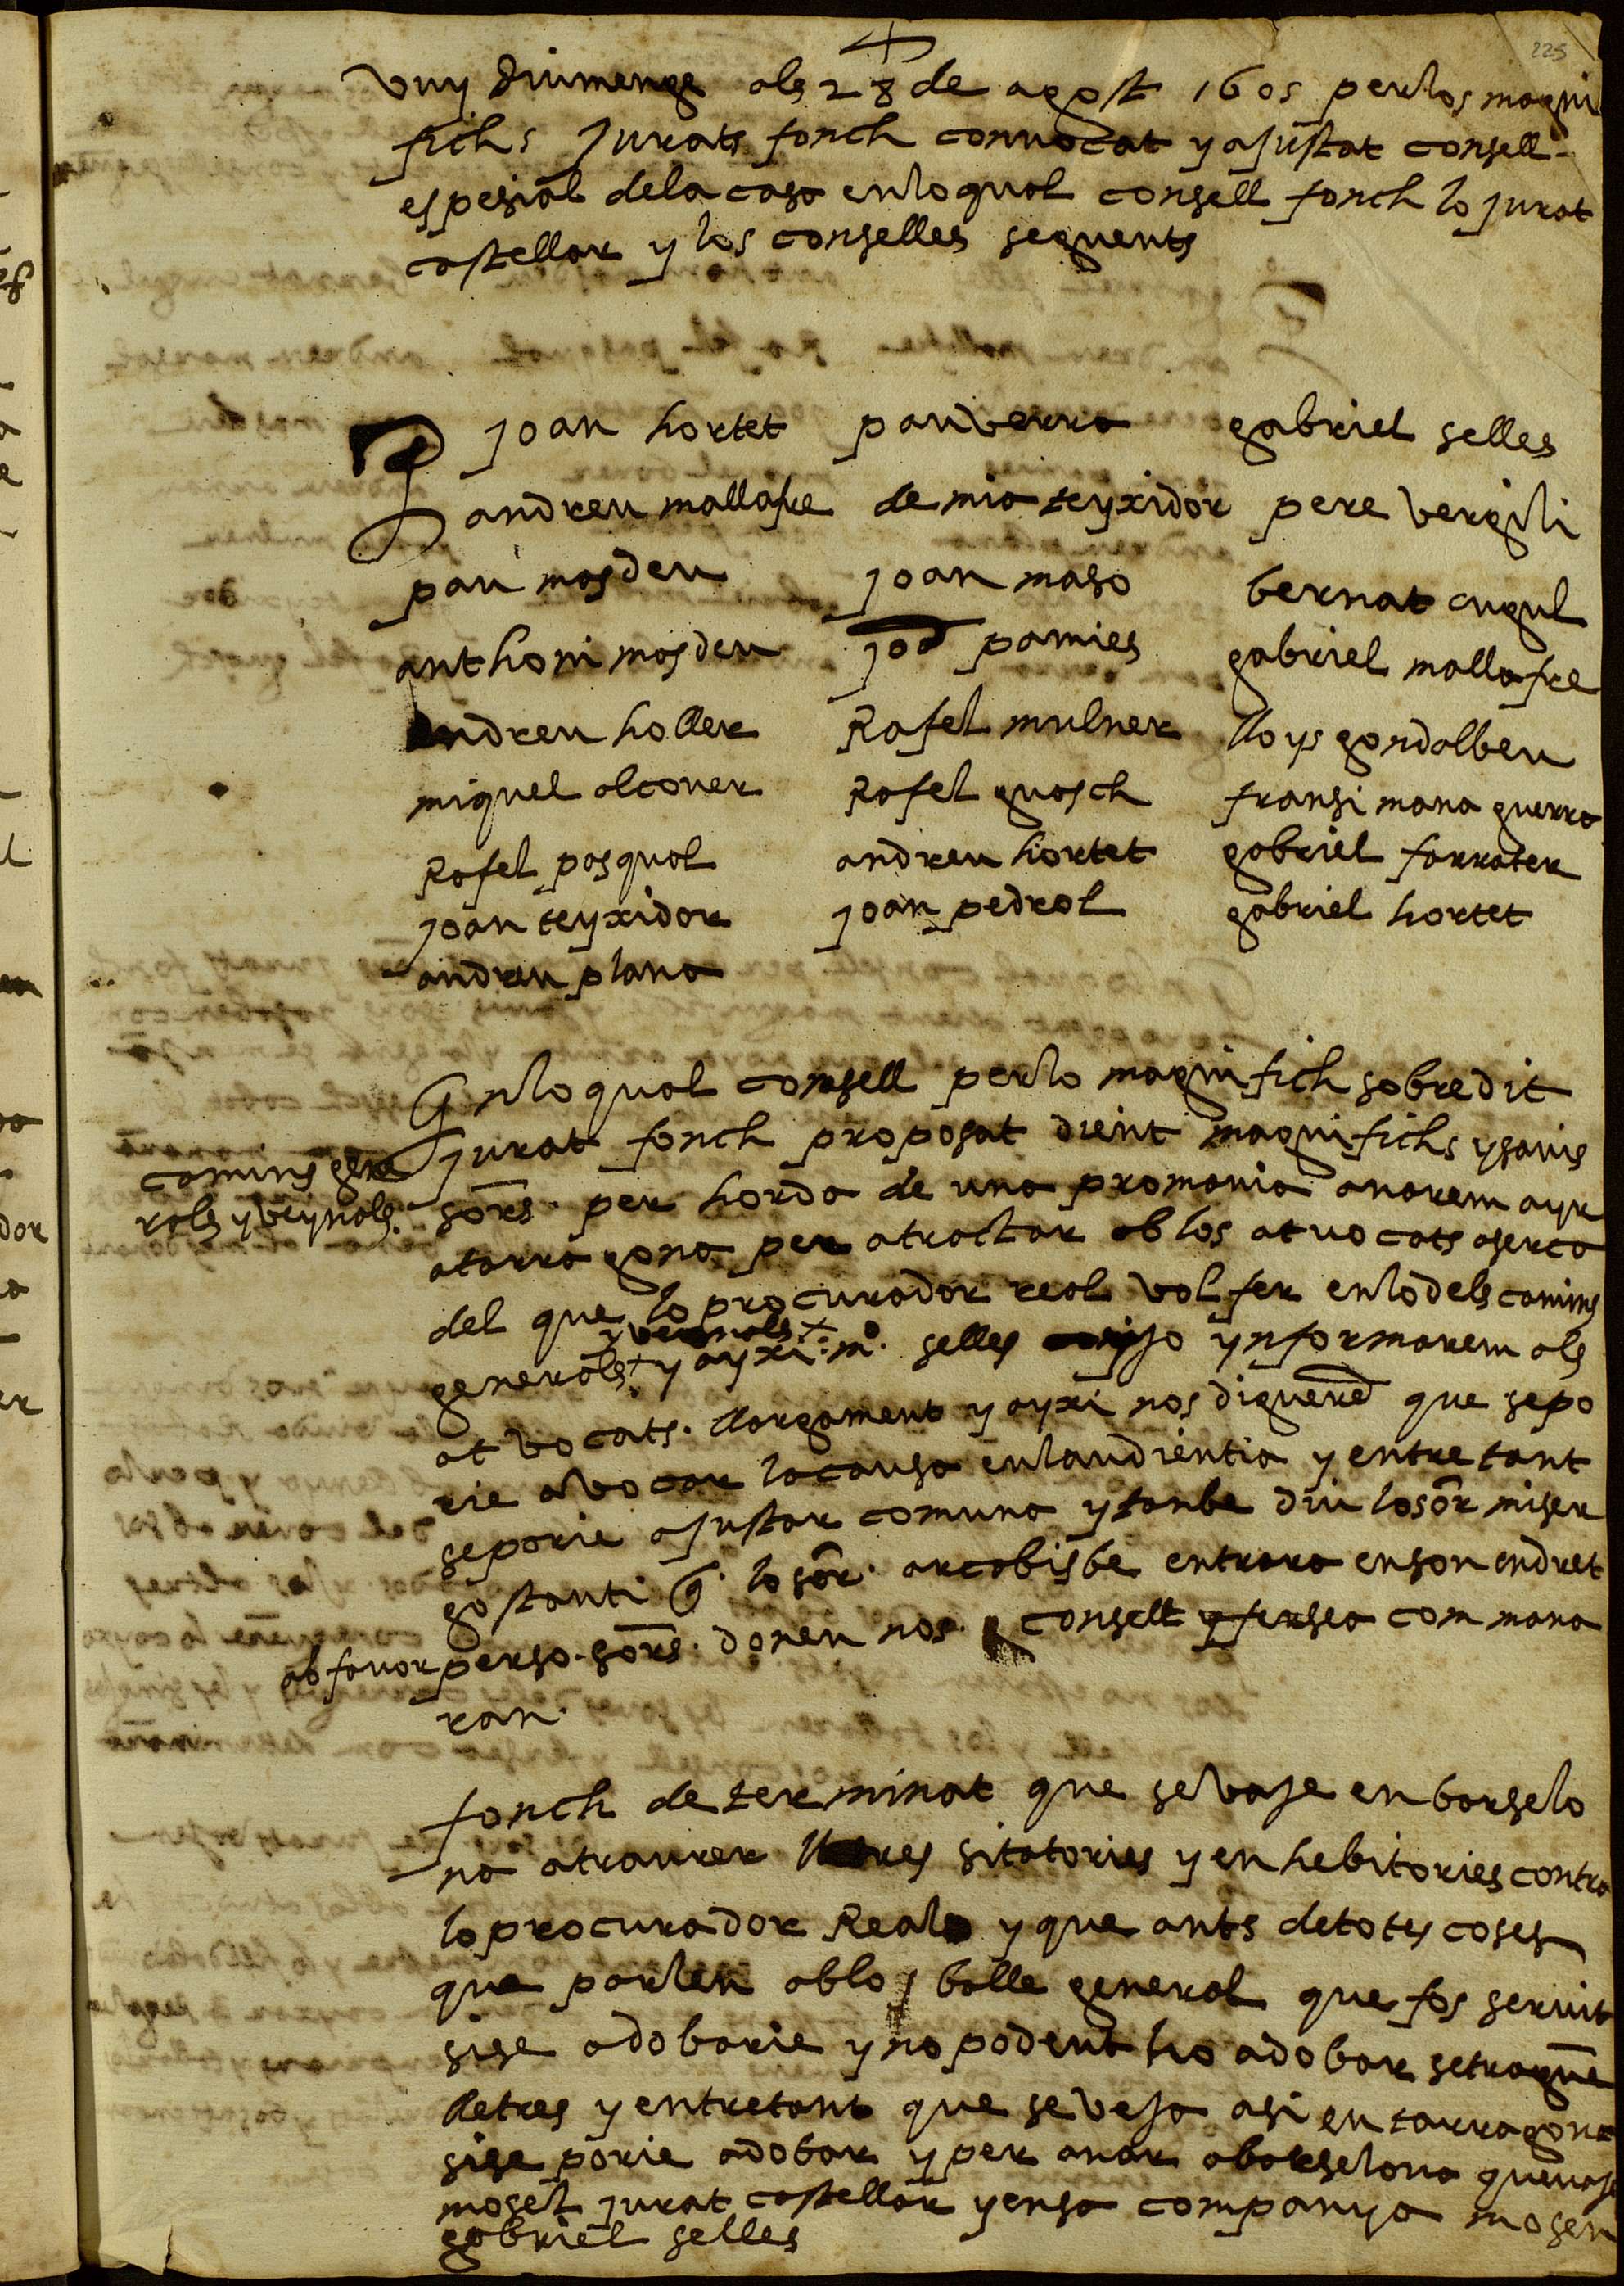 225
vuy diumenge als 28 de agost 1605 per los magni
fichs jurats fonch convocat y ajustat consell
espesial de la casa en lo qual consell fonch lo jurat
castellar y los conselles seguents
joan hortet pau verra gabriel selles
andreu mallafre demia teyxidor pere vergili
pau masdeu joan maso bernat cugul
anthoni masdeu joā pamies gabriel mallafre
andreu holler Rafel mulner lloys gondalbeu
miquel alcover Rafel guasch fransi mana guerra
Rafel pasqual andreu hortet gabriel farrater
joan teyxidor joan pedrol gabriel hortet
andreu plana
En lo qual consell per lo magnifich sobredit
jurat fonch proposat dient magnifichs y savis
camins gene
rals y veynals
sors. per horda de una promania anarem ayr
a tarragona per a tractar ab los atvocats aserca
del que lo procurador real vol fer en lo dels camins
y veynals
generals y ayxi mo. selles y jo ynformarem als
atvocats. llargament y ayxi nos digueren que se po
rie avocar la causa en laudientia y entretant
se porie ajustar comuna y tanbe diu lo sor miser
gostanti q. lo sor. arcabisbe entrara en son endret
ab favor per so. sors. donen nos consell y fersea com mana
ran.
fonch determinat que se vaje en barselo
na a traurer lletres sitatories y enhebitories contra
lo procurador Real y que ants de totes coses
que parlen ab lo balle general que fos servit
si se adobarie y no podent ho adobar se traguē
lletres y entretant que se veja asi en tarragona
si se porie adobar y per anar a barselona que vaje
mosen jurat castellar y en sa companya mosen
gabriel selles